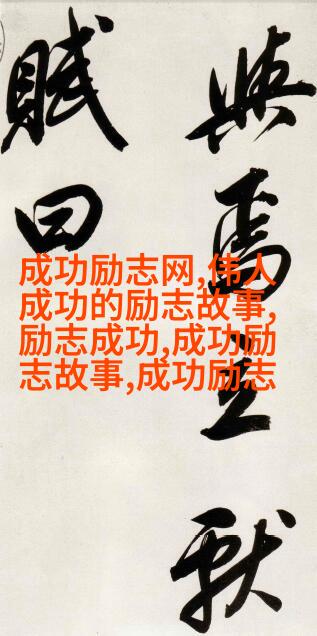 與焉立
賦曰
成功励志网,伟人
成功的励志故事,
励志成功,成功励
志故事,成功励志